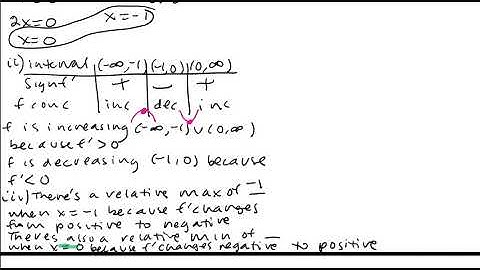 2x=0 x=-1
x=0
ii) interval (-∞,-1) (-1,0) (0,∞)
sign f' + - +
f conc inc dec inc
f is increasing (-∞,-1)∪(0,∞)
because f'>0
f is decreasing (-1,0) because
f'<0
iii) There's a relative max of -1
when x=-1 because f' changes
from positive to negative
Theres also a relative min of _
when x=0 because f' changes negative to positive